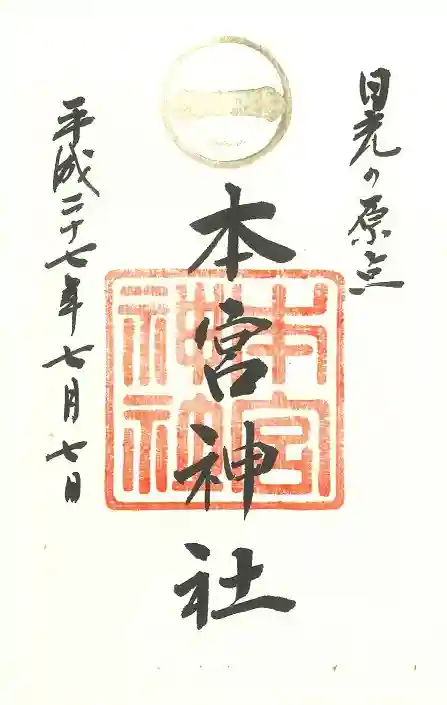 日光の原点
本宮神社
平成二十七年七月七日